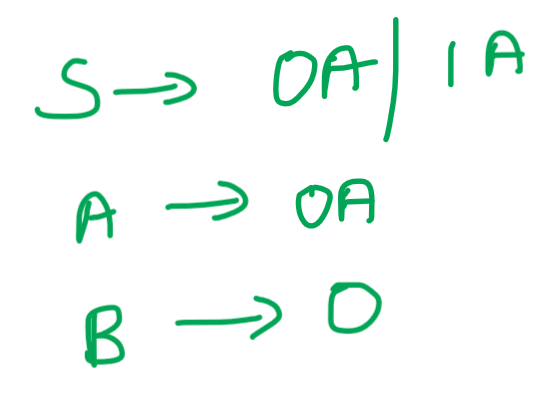 S → 0A | 1A
A → 0A
B → 0